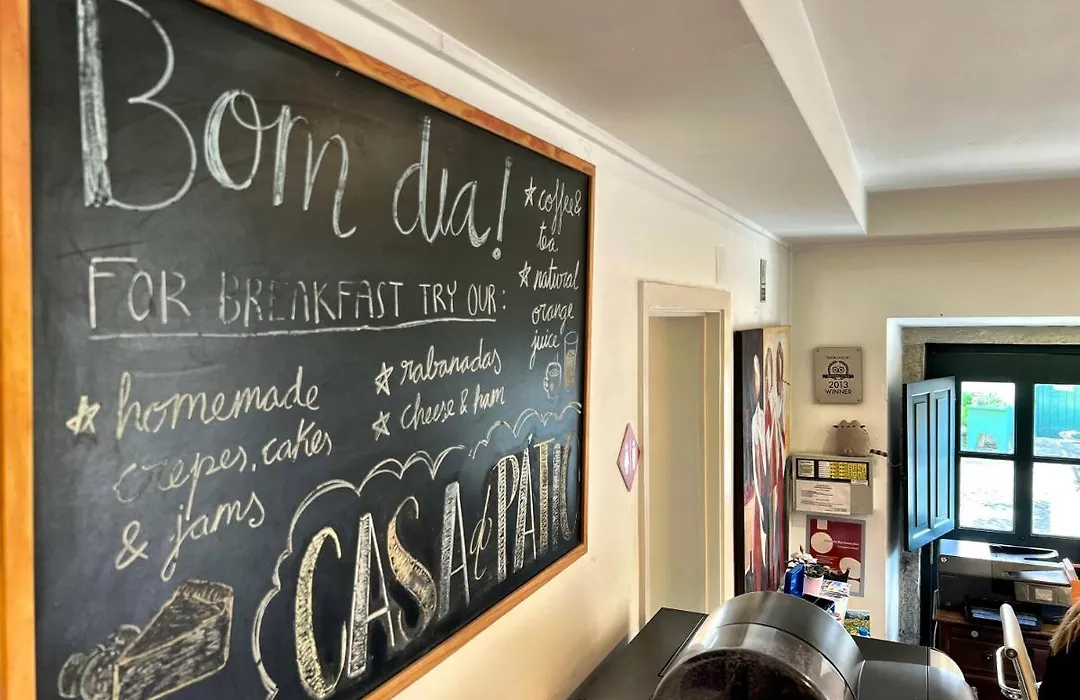 Bom dia!
FOR BREAKFAST TRY OUR:
homemade
crepes, cakes
& jams
rabanadas
cheese & ham
coffee &
tea
natural
orange
juice
CASA do PATIO
2013
WINNER